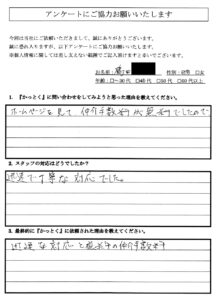 アンケートにご協力お願いいたします
今回は当社にご依頼いただきまして、誠にありがとうございます。
誠に恐れ入りますが、以下アンケートにご協力お願いいたします。
※個人情報に関しては差し支えない範囲でご記入頂けますと幸いでございます。
お名前: 性別:☑男 □女
年齢:□~30代 □40代 □50代 □60代以上
1. 『かっとく』に問い合わせをしてみようと思った理由を教えてください。
ホームページを見て 仲介手数料が無料でしたので
2. スタッフの対応はどうでしたか?
迅速で丁寧な対応でした。
3. 最終的に『かっとく』に依頼された理由を教えてください。
迅速な対応と無料の仲介手数料